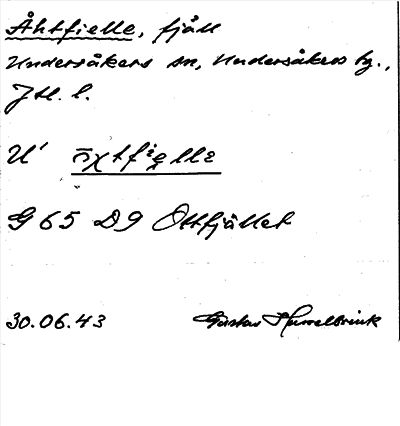 Åhtfielle, fjäll
Undersåkers sn, Undersåkers tg.,
Jtl. l.
U'
G 65 D9 Ottfjället
30.06.43 Gustav Hasselbrink